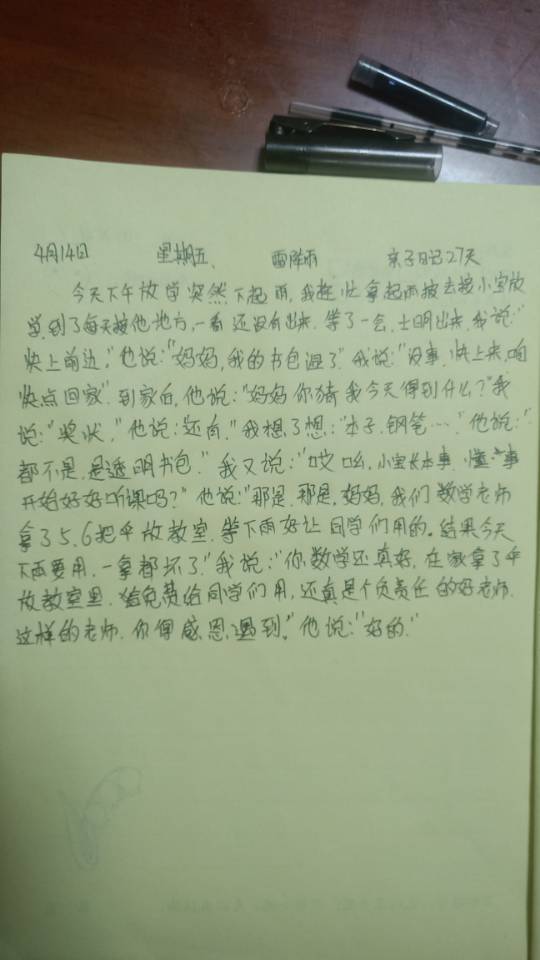 4月14日 星期五、 雷阵雨 亲子日记27天
今天下午放学突然下起雨，我赶忙拿起雨披去接小宝放
学，到了每天接他地方，一看还没有出来，等了一会，出来，我说："
快上前边，"他说："妈妈，我的书包湿了"我说："没事，快上来，咱
快点回家"到家后，他说："妈妈你猜我今天得到什么？"我
说："奖状，"他说："还有，"我想了想："本子，钢笔…"他说："
都不是，是透明书包。"我又说："哎呦，小宝长本事，懂事
开始好好听课吗？"他说："那是，那是，妈妈，我们数学老师
拿了5.6把伞放教室，等下雨好让同学们用的。结果今天
下雨要用，一拿都坏了"我说："你数学还真好，在家拿了伞
放教室里，免费给同学们用，还真是个负责任的好老师，
这样的老师，你得感恩，遇到。"他说："好的"